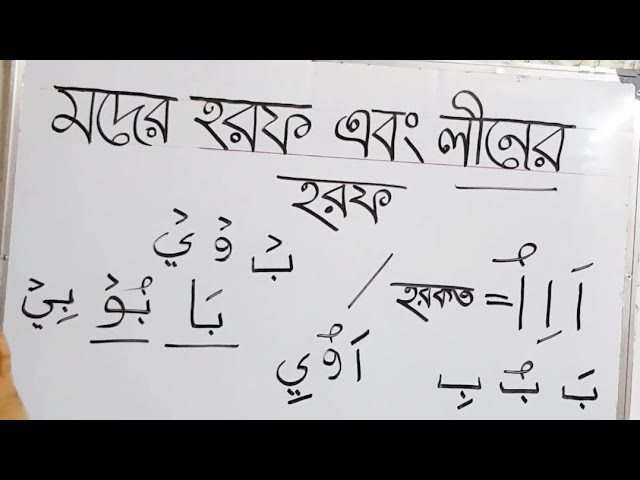 মদের হরফ এবং লীনের
হরফ
بْ وْ يْ
بَا بُوْ بِيْ
হরকত = اَ اِ اُ
اَ وُ يِ
بَ بُ بِ